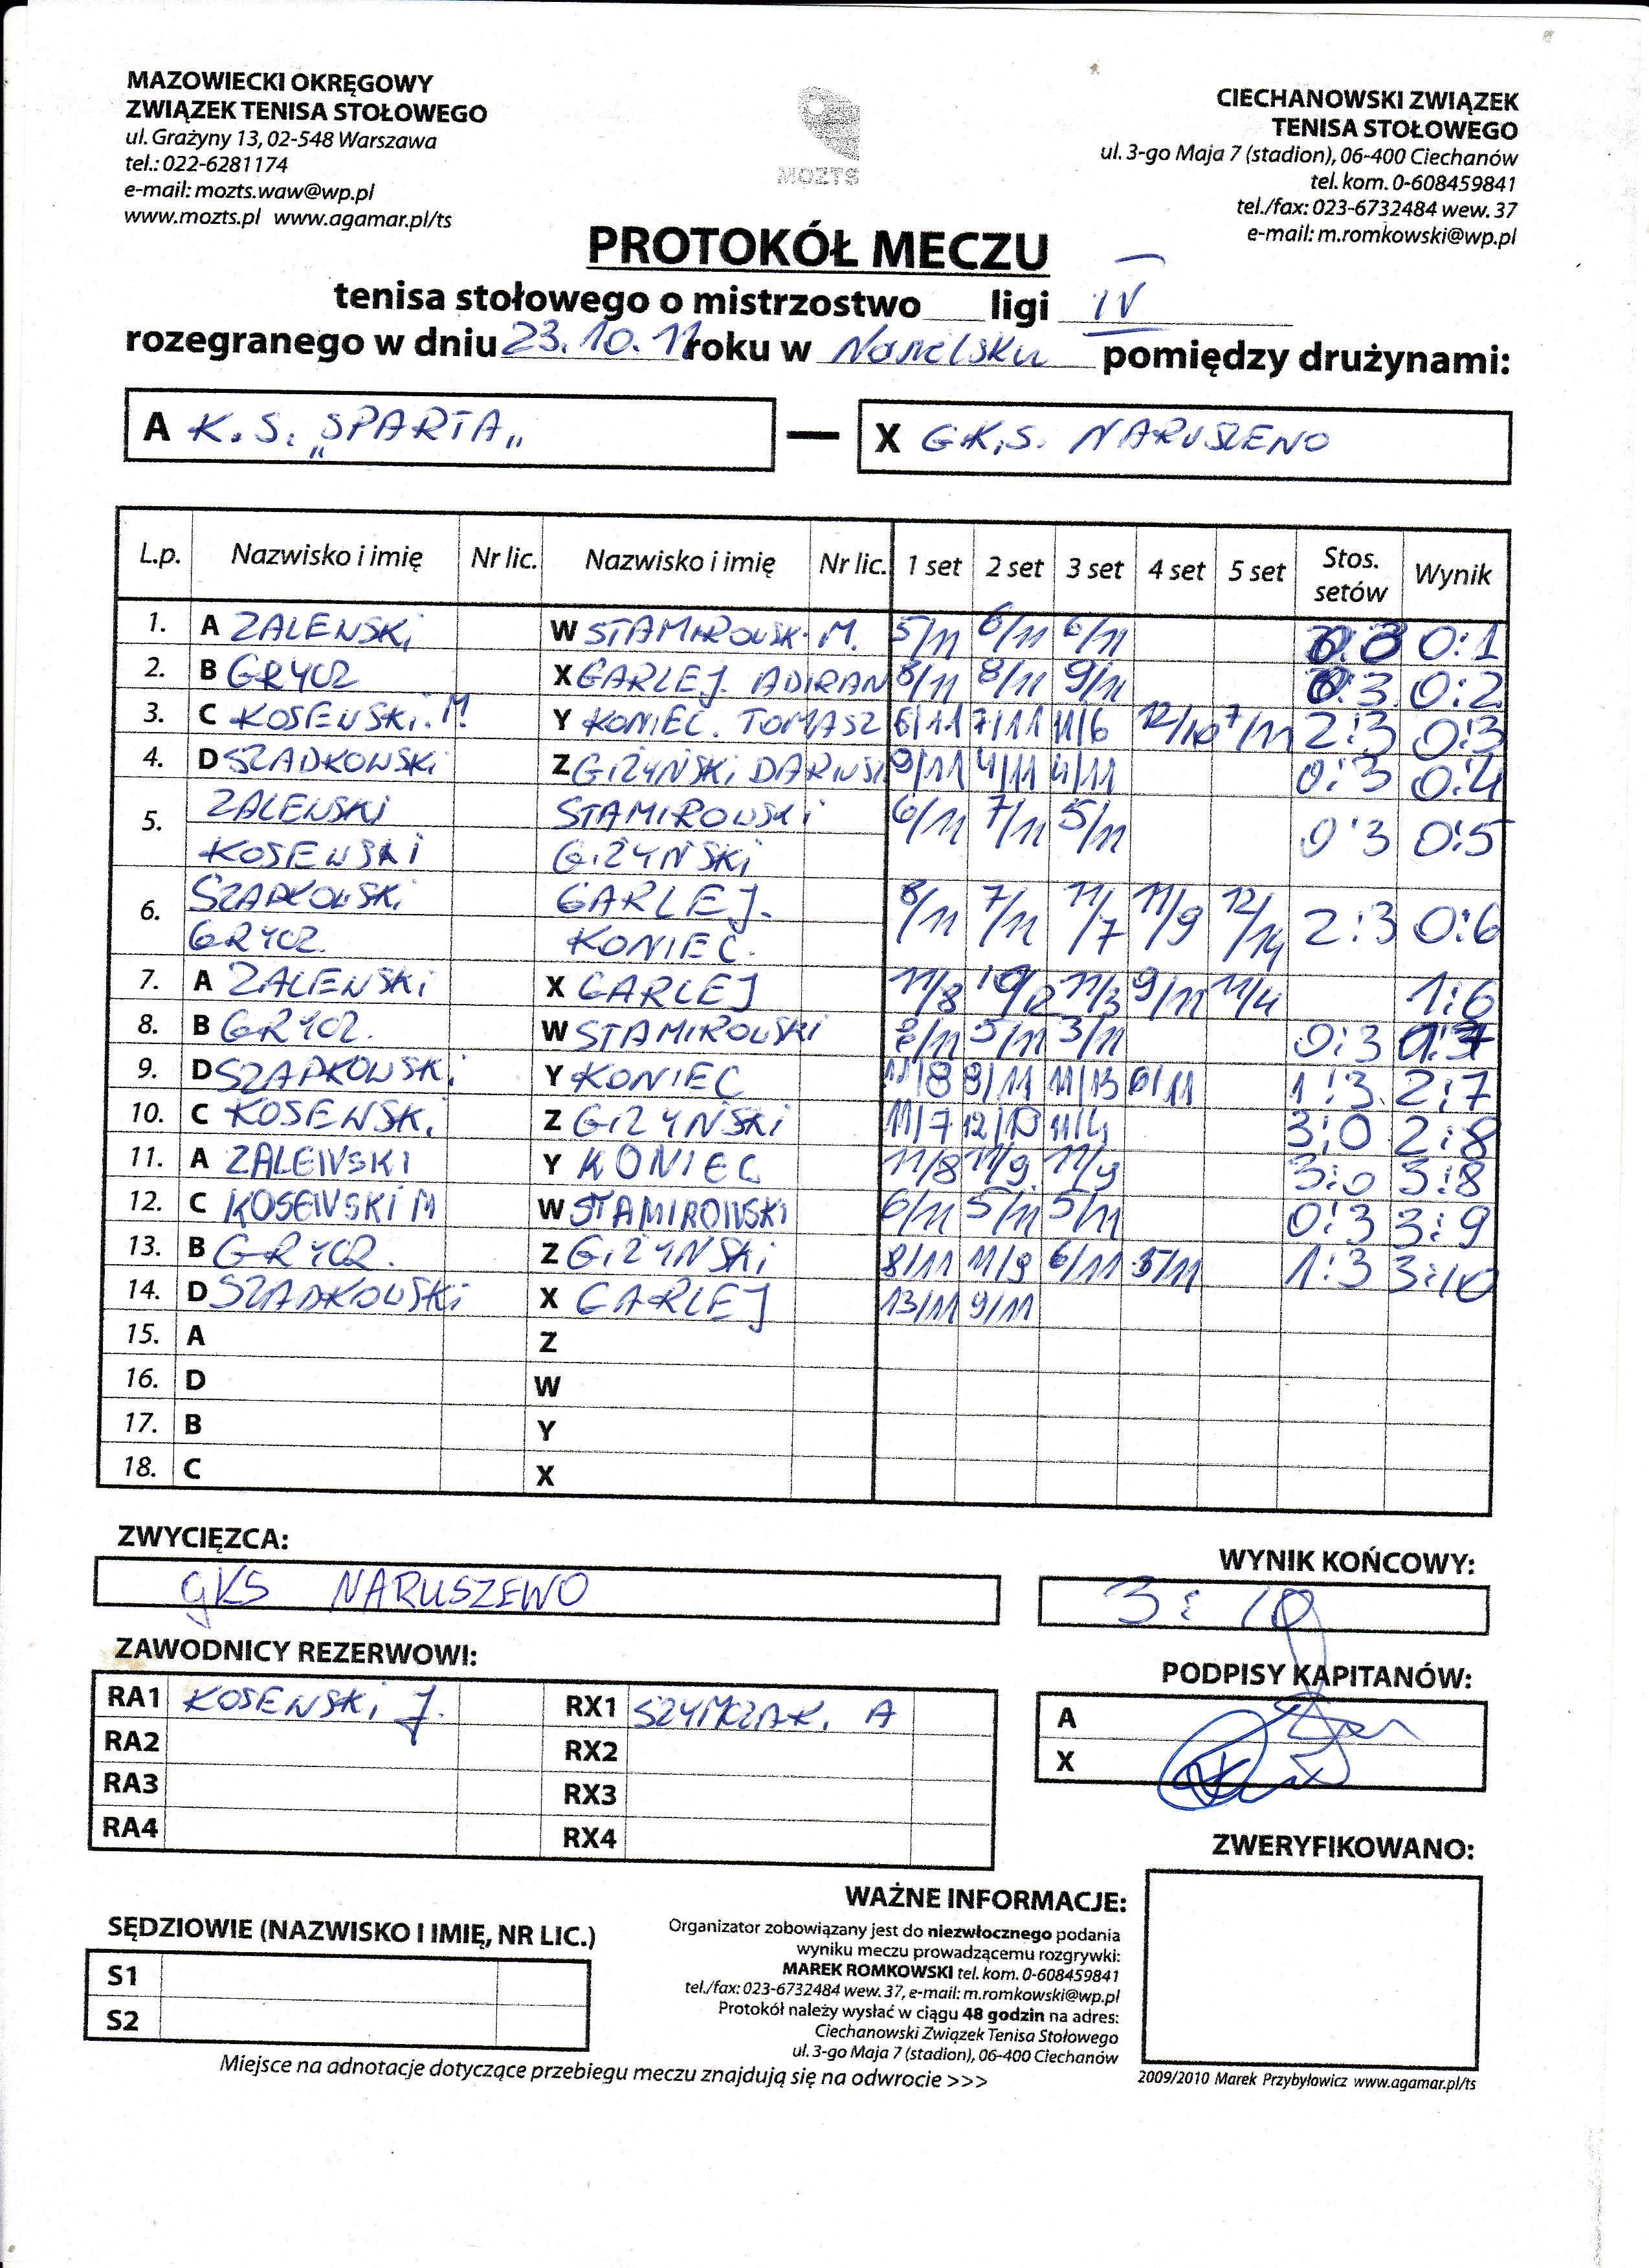 MAZOWIECKI OKRĘGOWY
ZWIĄZEK TENISA STOŁOWEGO
ul. Grażyny 13, 02-548 Warszawa
tel.: 022-6281174
e-mail: mozts.waw@wp.pl
www.mozts.pl www.agamar.pl/ts
MOZTS
CIECHANOWSKI ZWIĄZEK
TENISA STOŁOWEGO
ul. 3-go Maja 7 (stadion), 06-400 Ciechanów
tel. kom. 0-608459841
tel./fax: 023-6732484 wew. 37
e-mail: m.romkowski@wp.pl
PROTOKÓŁ MECZU
tenisa stołowego o mistrzostwo ligi IV
rozegranego w dniu 23.10.11 roku w Nasielsku pomiędzy drużynami:
A K.S. „SPARTA„ — X G.K.S. NARUSZEWO
L.p. Nazwisko i imię Nr lic. Nazwisko i imię Nr lic. 1 set 2 set 3 set 4 set 5 set Stos. setów Wynik
1. A ZALEWSKI W STAMIROWSKI M. 5/11 6/11 6/11 0:3 0:1
2. B GRYCZ X GARLEJ. ADIRAN 8/11 8/11 9/11 0:3 0:2
3. C KOSEWSKI. M Y KONIEC. TOMASZ 6/11 7/11 11/6 12/10 7/11 2:3 0:3
4. D SZADKOWSKI Z GIŻYŃSKI DARIUSZ 9/11 4/11 4/11 0:3 0:4
5. ZALEWSKI STAMIROWSKI 6/11 7/11 5/11 0:3 0:5
KOSEWSKI GIŻYŃSKI
6. SZADKOWSKI GARLEJ. 8/11 7/11 11/7 11/9 12/14 2:3 0:6
GRYCZ KONIEC.
7. A ZALEWSKI X GARLEJ 11/8 10/12 11/3 9/11 11/4 1:6
8. B GRYCZ. W STAMIROWSKI 5/11 3/11 0:3
9. D SZADKOWSKI Y KONIEC 11/8 9/11 11/13 6/11 1:3 2:7
10. C KOSEWSKI Z GIŻYŃSKI 11/7 12/10 11/4 3:0 2:8
11. A ZALEWSKI Y KONIEC 11/8 11/9 11/9 3:0 3:8
12. C KOSEWSKI M W STAMIROWSKI 6/11 5/11 5/11 0:3 3:9
13. B GRYCZ. Z GIŻYŃSKI 8/11 11/9 6/11 5/11 1:3 3:10
14. D SZADKOWSKI X GARLEJ 13/11 9/11
15. A Z
16. D W
17. B Y
18. C X
ZWYCIĘZCA:
GKS NARUSZEWO
WYNIK KOŃCOWY:
3:10
ZAWODNICY REZERWOWI:
RA1 KOSEWSKI J. RX1 SZYMCZAK. A
RA2 RX2
RA3 RX3
RA4 RX4
PODPISY KAPITANÓW:
A
X
ZWERYFIKOWANO:
SĘDZIOWIE (NAZWISKO I IMIĘ, NR LIC.)
S1
S2
WAŻNE INFORMACJE:
Organizator zobowiązany jest do niezwłocznego podania
wyniku meczu prowadzącemu rozgrywki:
MAREK ROMKOWSKI tel. kom. 0-608459841
tel./fax: 023-6732484 wew. 37, e-mail: m.romkowski@wp.pl
Protokół należy wysłać w ciągu 48 godzin na adres:
Ciechanowski Związek Tenisa Stołowego
ul. 3-go Maja 7 (stadion), 06-400 Ciechanów
Miejsce na adnotacje dotyczące przebiegu meczu znajdują się na odwrocie >>>
2009/2010 Marek Przybyłowicz www.agamar.pl/ts